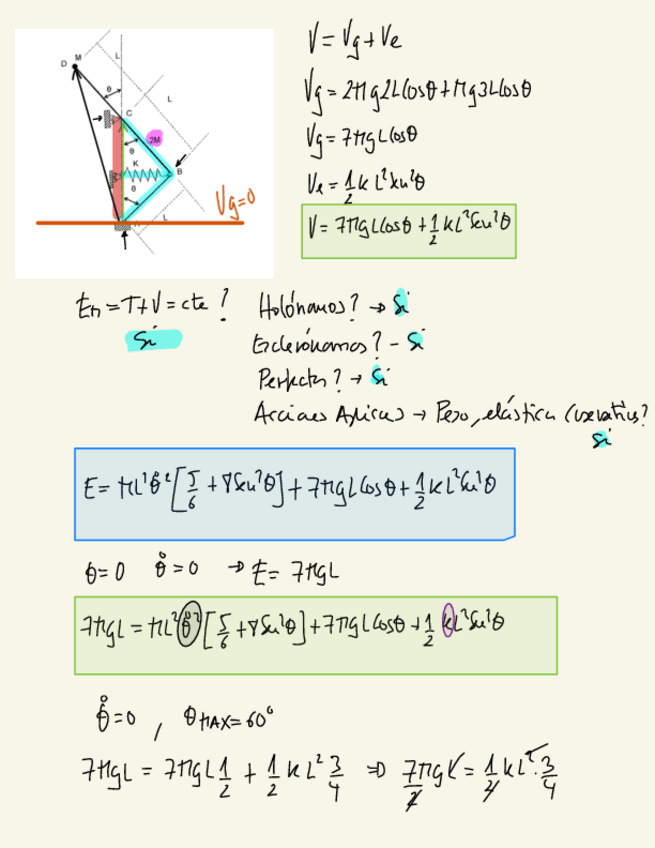 D M L
θ
C L
θ 2M
K B
θ
L
Vg=0
V = Vg + Ve
Vg = 2Mg2Lcosθ + Mg3Lcosθ
Vg = 7MgLcosθ
Ve = 1/2 k L² sen²θ
V = 7MgLcosθ + 1/2 kL² sen²θ
Em = T+V = cte ? Holónomos? → Si
Si Esclerónomos? - Si
Perfectos? → Si
Acciones Aplicas → Peso, elástica Conservativas?
si
E = ML²θ̇² [5/6 + 8sen²θ] + 7MgLcosθ + 1/2 kL² sen²θ
θ=0 θ̇=0 → E = 7MgL
7MgL = ML²θ̇² [5/6 + 8sen²θ] + 7MgLcosθ + 1/2 kL² sen²θ
θ̇=0 , θMAX=60°
7MgL = 7MgL 1/2 + 1/2 kL² 3/4 ⇒ 7/2 MgL = 1/2 kL² · 3/4